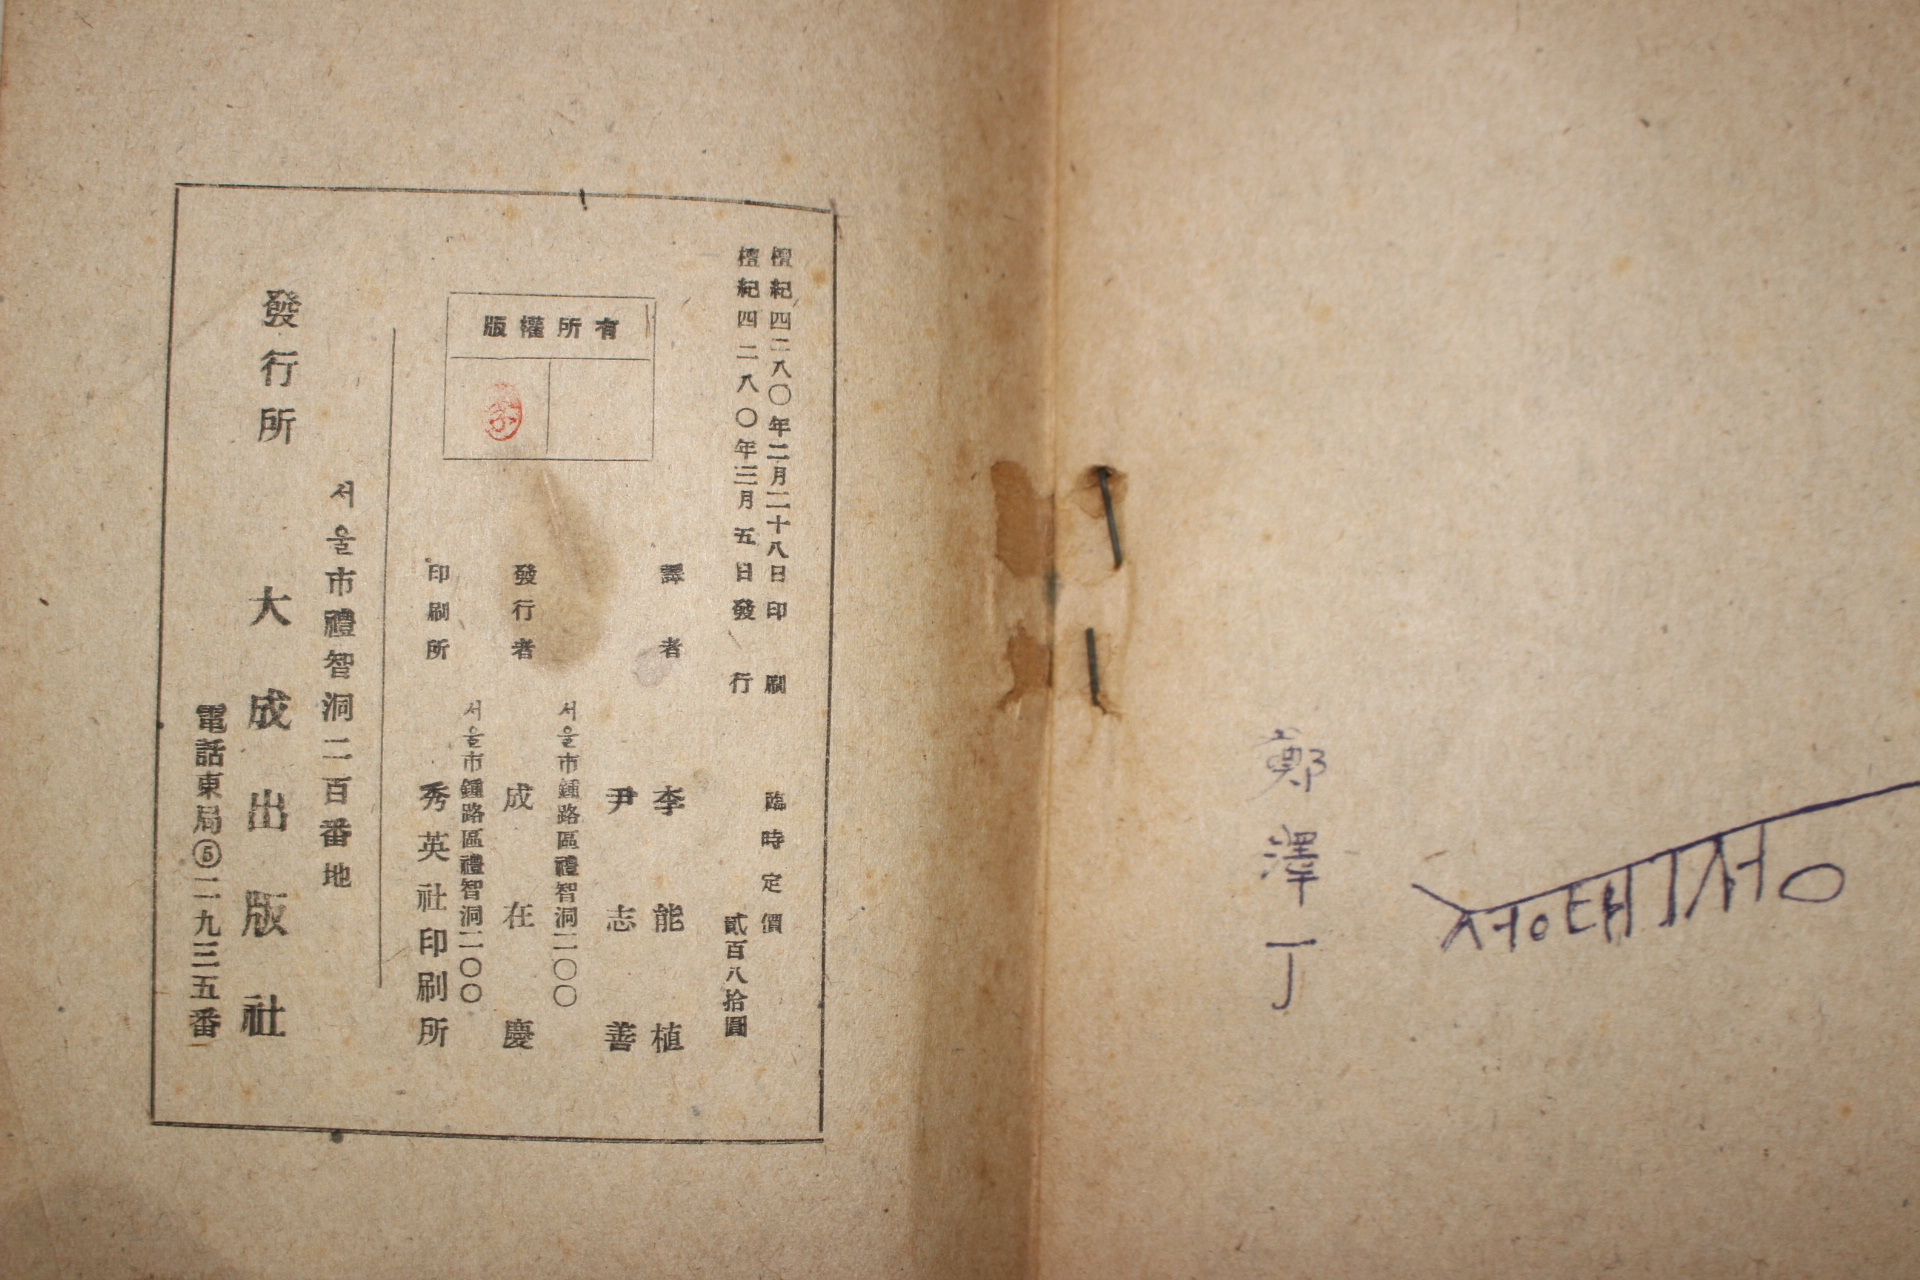 檀紀四二八〇年二月二十八日印刷
檀紀四二八〇年三月五日發行
臨時定價
貳百八拾圓
版權所有
譯者 李能植
尹志善
서울市鍾路區禮智洞二〇〇
發行者 成在慶
서울市鍾路區禮智洞二〇〇
印刷所 秀英社印刷所
서울市禮智洞二百番地
發行所 大成出版社
電話東局⑤二九三五番
鄭澤丁